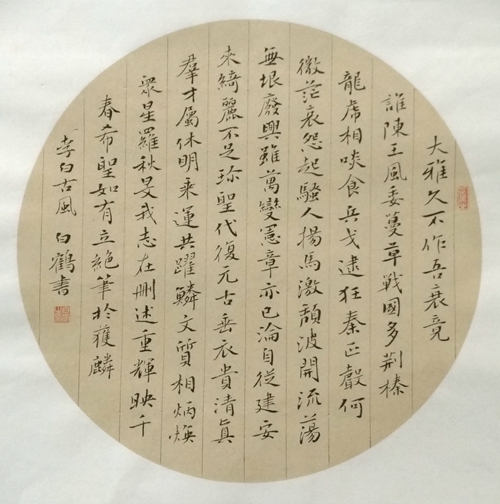 大雅久不作吾衰竟
誰陳王風委蔓草戰國多荊榛
龍虎相啖食兵戈逮狂秦正聲何
微茫哀怨起騷人揚馬激頹波開流蕩
無垠廢興雖萬變憲章亦已淪自從建安
來綺麗不足珍聖代復元古垂衣貴清真
羣才屬休明乘運共躍鱗文質相炳煥
眾星羅秋旻我志在刪述重輝映千
春希聖如有立絕筆於獲麟
李白古風 白鶴書